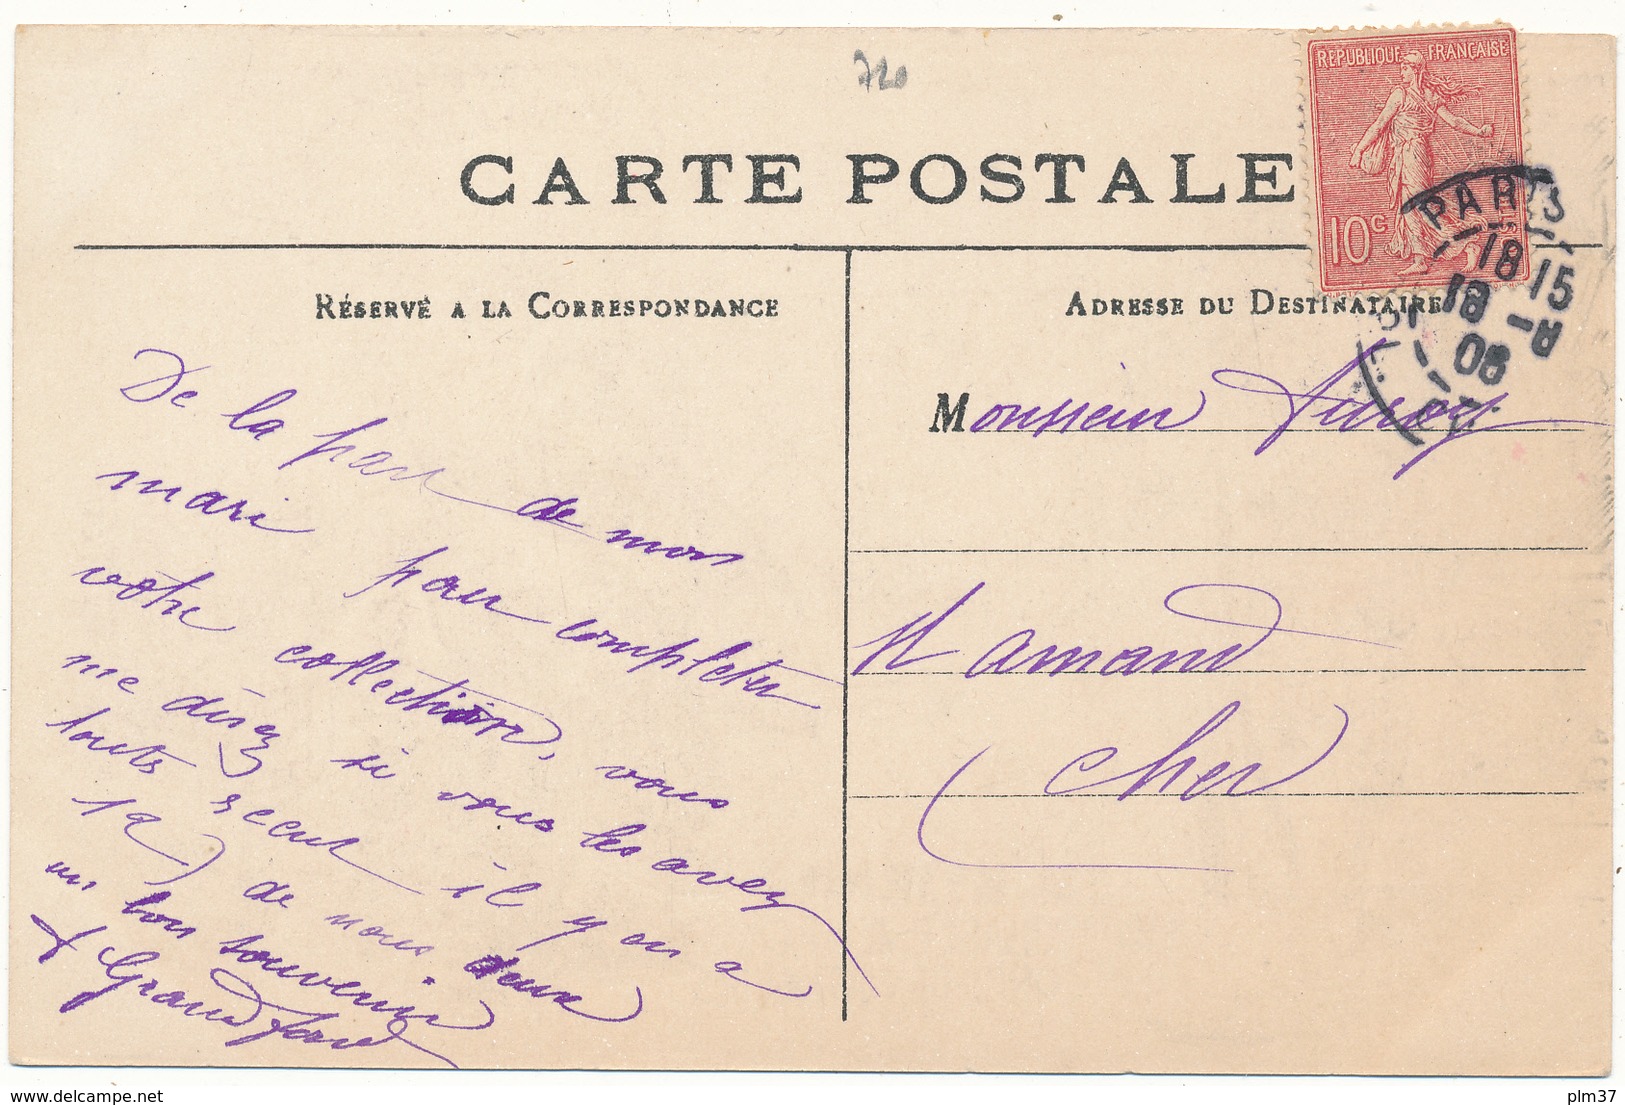 720
CARTE POSTALE
REPUBLIQUE FRANÇAISE
10c
PARIS
18 15
18 - 8
06
RÉSERVÉ A LA CORRESPONDANCE
De la part de mon
mari pour completer
votre collection, vous
me disez si vous les avez
touts recut il y en a
12 de nous deux
un bon souvenir
Grandjean
ADRESSE DU DESTINATAIRE
Monsieur
St Amand
Cher
www.delcampe.net
plm37